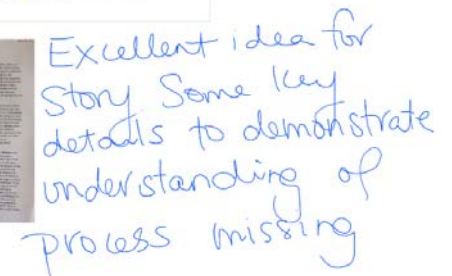 Excellent idea for
Story. Some key
details to demonstrate
understanding of
process missing